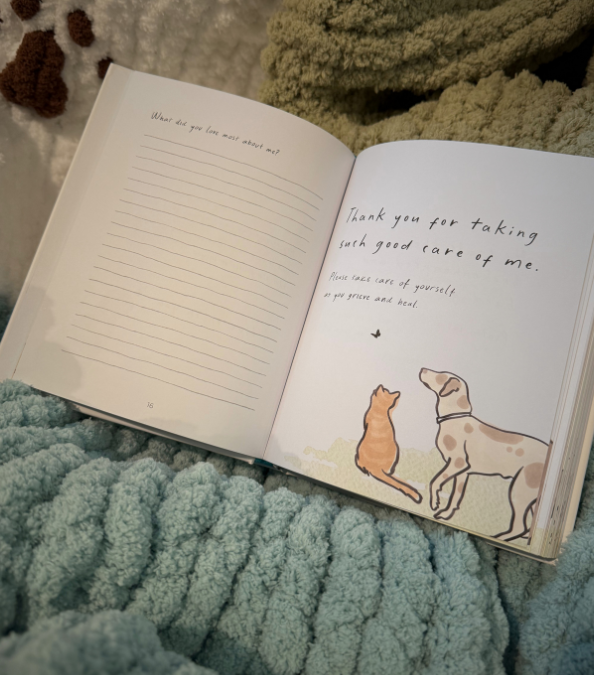 What did you love most about me?
16
Thank you for taking
such good care of me.
Please take care of yourself
as you grieve and heal.